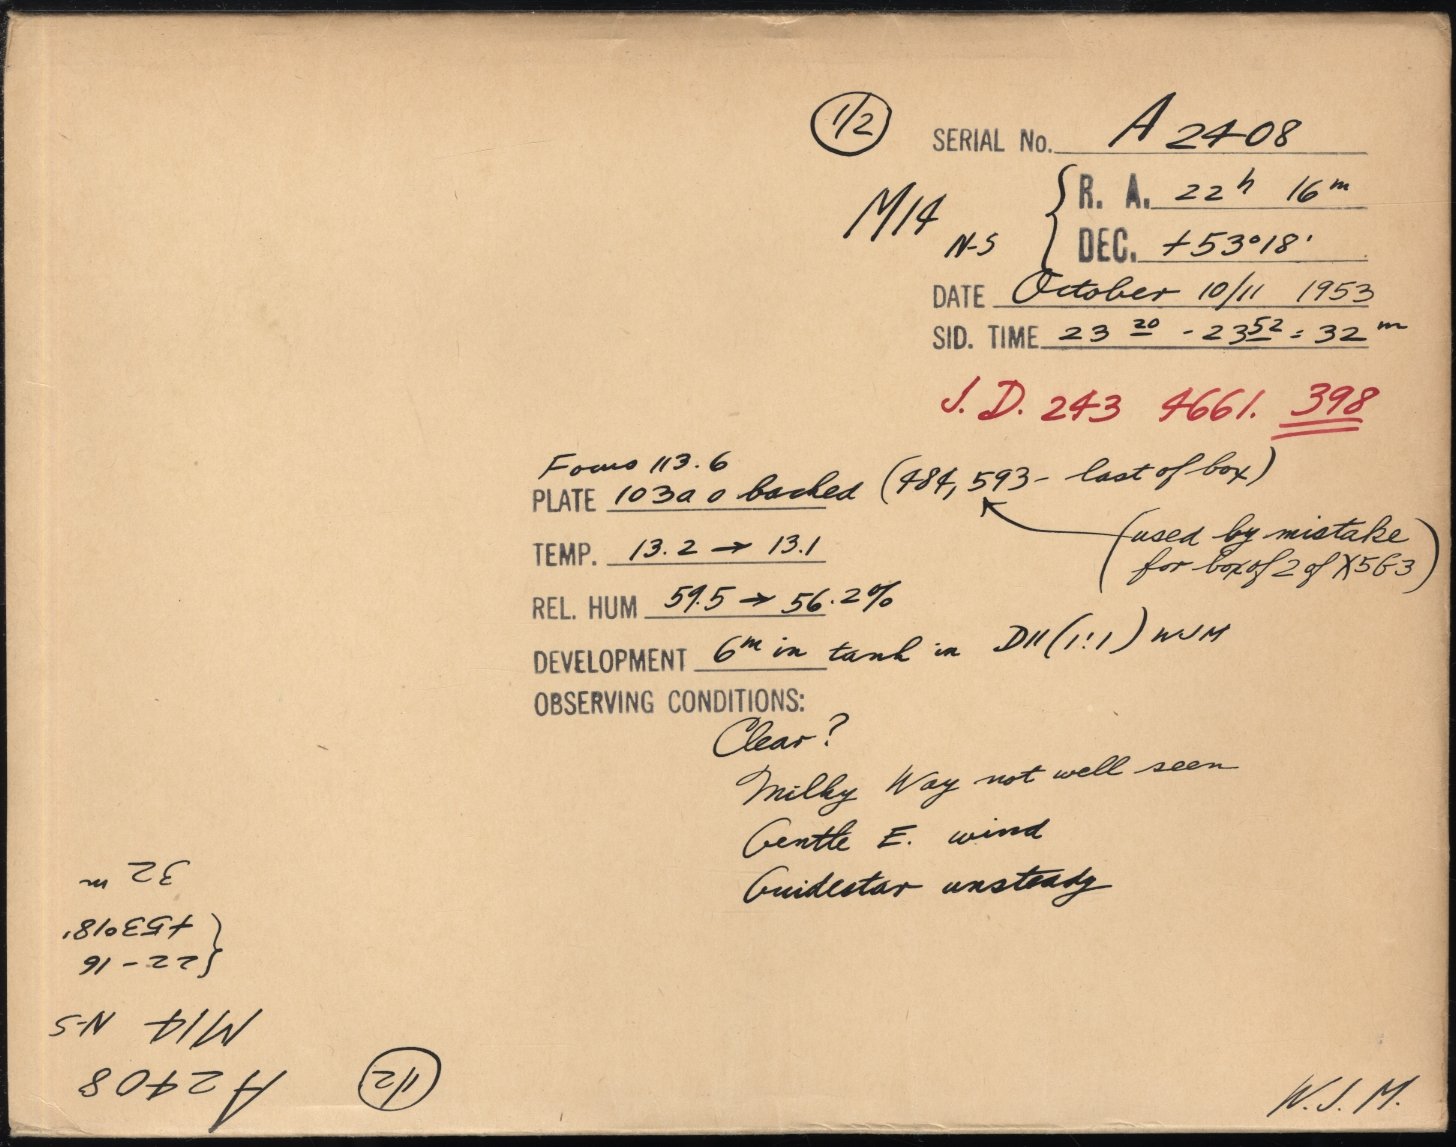 1/2
SERIAL No. A 2408
M14 N-S
R. A. 22h 16m
DEC. +53°18'
DATE October 10/11 1953
SID. TIME 23 20 - 23 52 = 32 m
J. D. 243 4661. 398
Focus 113.6
PLATE 103a O backed (484, 593 - last of box)
(used by mistake
for box of 2 of X563)
TEMP. 13.2 → 13.1
REL. HUM 59.5 → 56.2%
DEVELOPMENT 6m in tank in D11 (1:1) WJM
OBSERVING CONDITIONS:
Clear?
Milky Way not well seen
Gentle E. wind
Guidestar unsteady
W.J.M.
1/2
A2408
M14 N-S
22-16
+53°18'
32 m